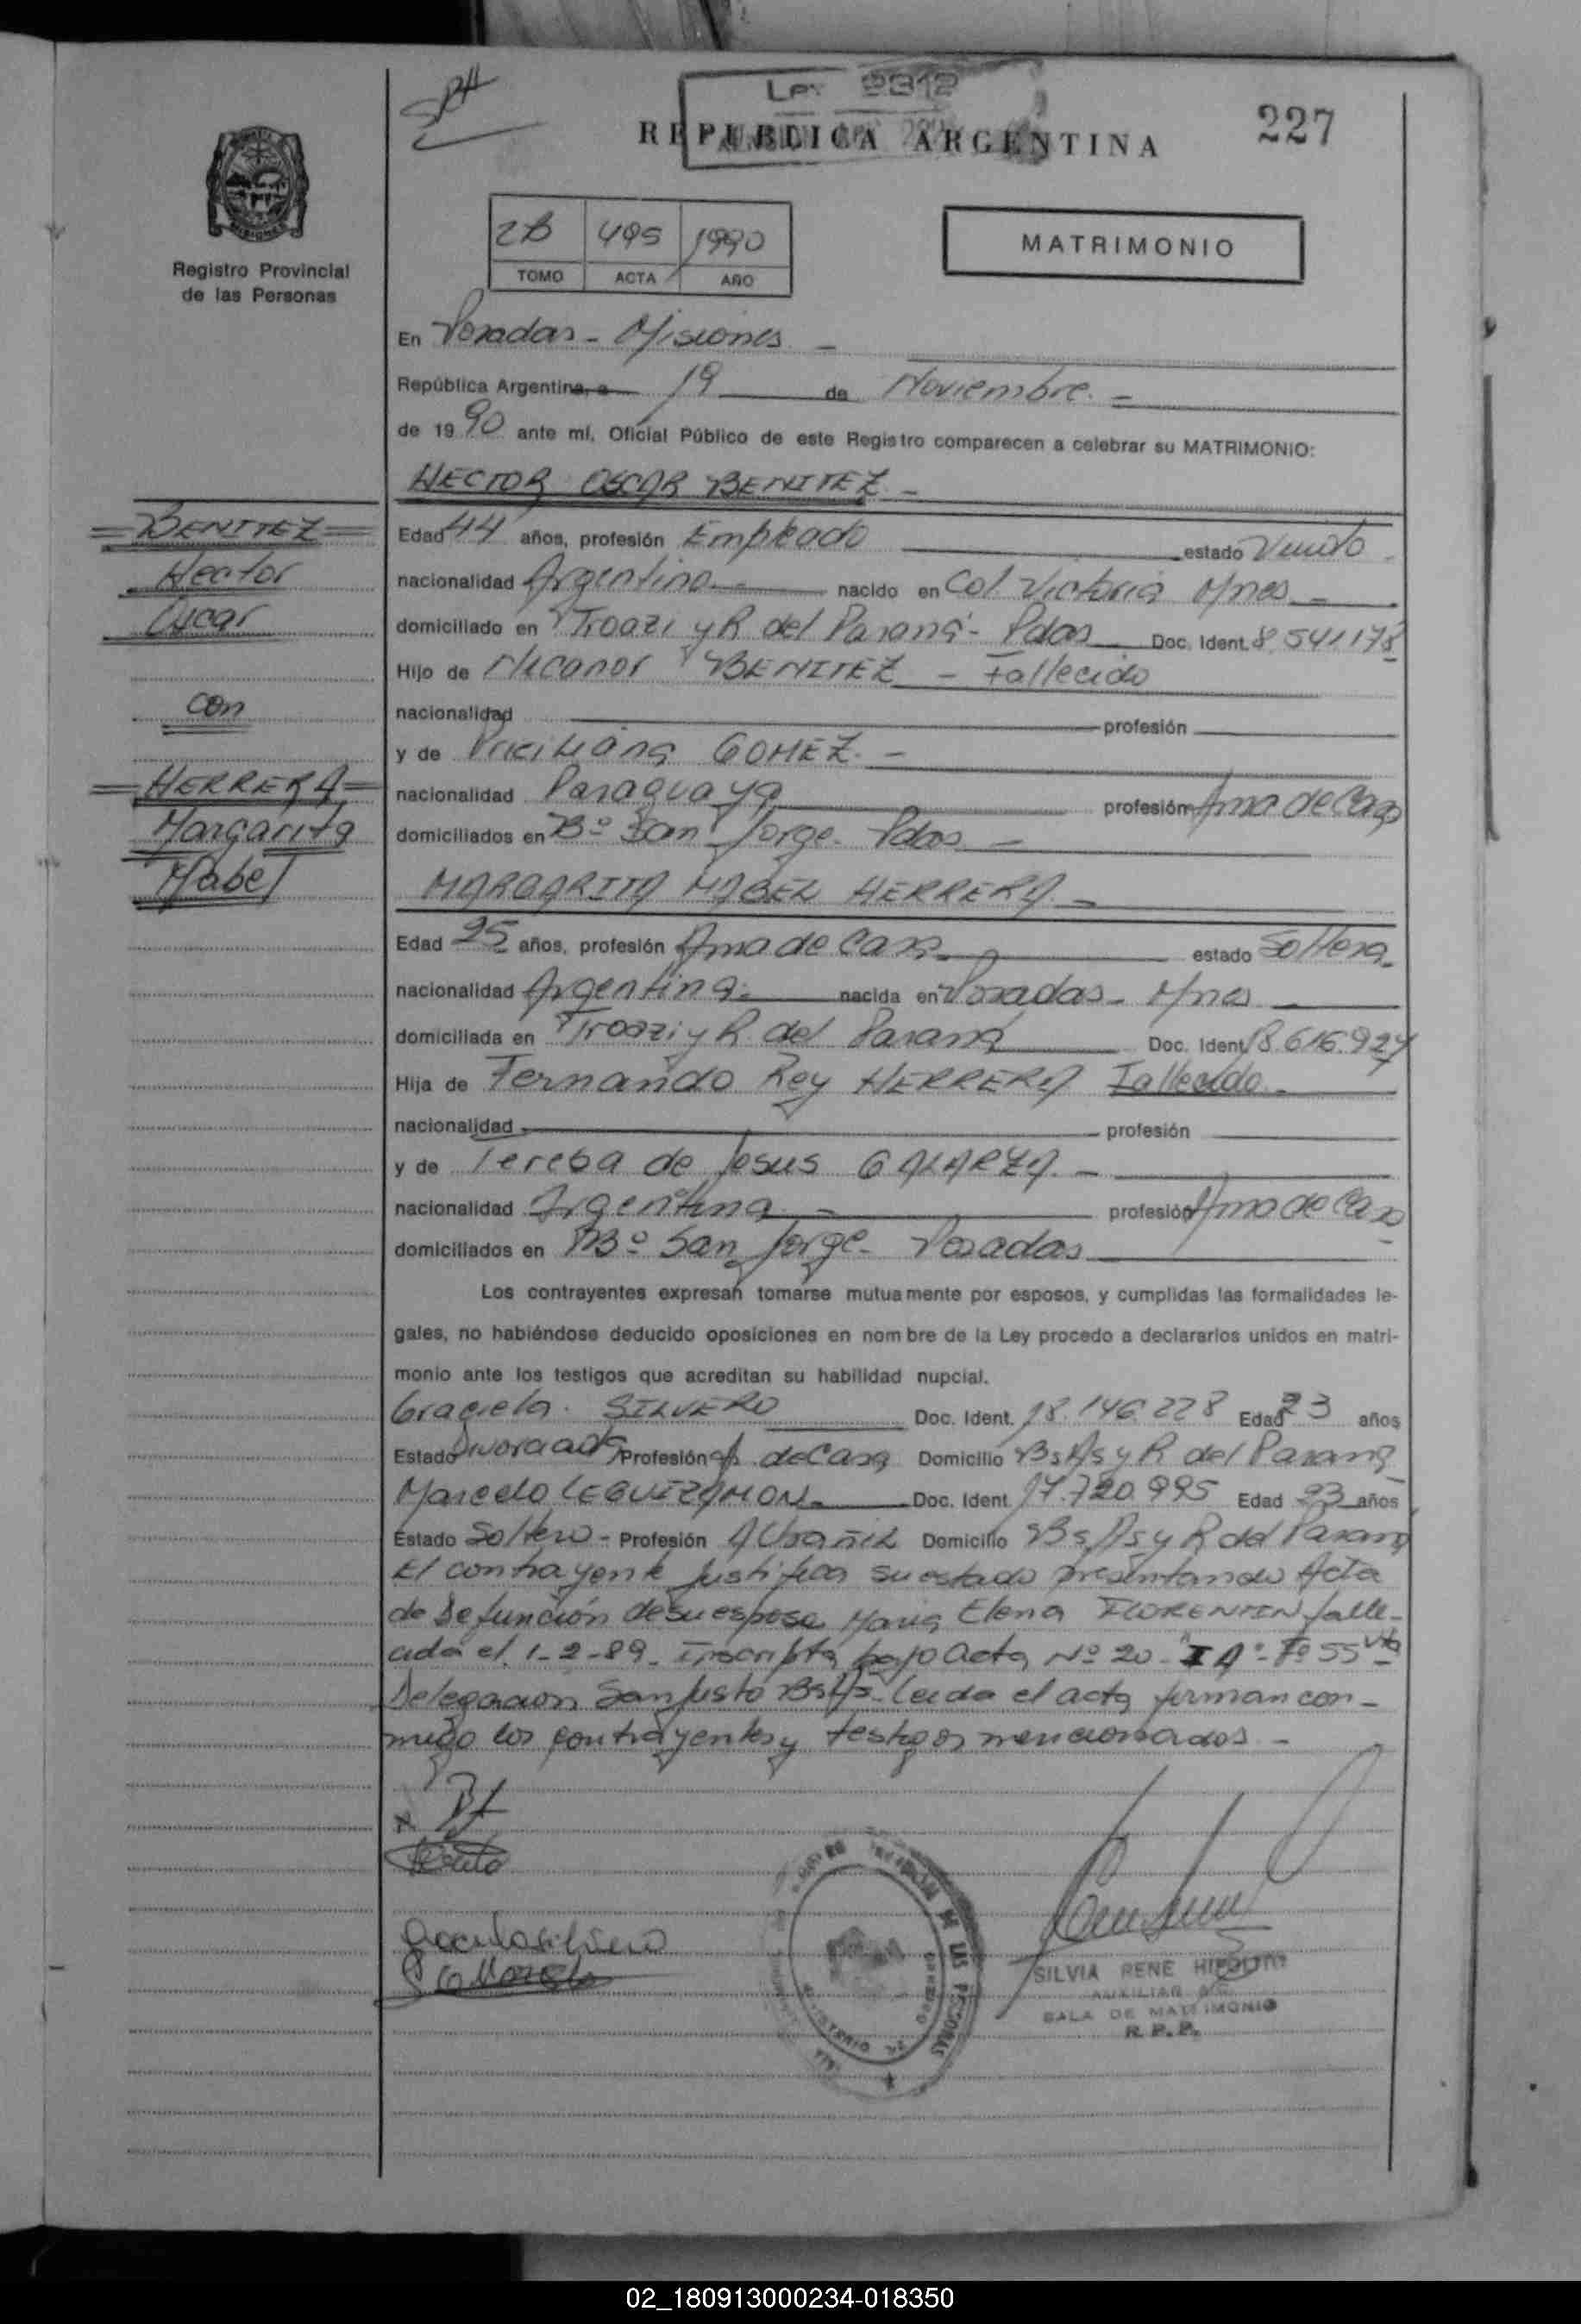 Ley 2312
REPUBLICA ARGENTINA
227
Registro Provincial
de las Personas
2B 495 1990
TOMO ACTA AÑO
MATRIMONIO
En Posadas - Misiones -
República Argentina, a 19 de Noviembre. -
de 1990 ante mí, Oficial Público de este Registro comparecen a celebrar su MATRIMONIO:
HECTOR OSCAR BENITEZ -
=BENITEZ=
Hector
Oscar
con
=HERRERA=
Margarita
Mabel
Edad 44 años, profesión Empleado estado Viudo
nacionalidad Argentina nacido en Col. Victoria Mnes -
domiciliado en Troazi y R del Paraná - Pdas Doc. Ident. 8.541.178
Hijo de Nicanor BENITEZ - Fallecido
nacionalidad profesión
y de GOMEZ. -
nacionalidad Paraguaya profesión Ama de Casa
domiciliados en Bº San Jorge - Pdas -
MARGARITA MABEL HERRERA -
Edad 25 años, profesión Ama de Casa estado Soltera
nacionalidad Argentina nacida en Posadas - Mnes
domiciliada en Troazi y R. del Paraná Doc. Ident. 18.616.927
Hija de Fernando Rey HERRERA Fallecido -
nacionalidad profesión
y de Teresa de Jesus GALARZA. -
nacionalidad Argentina - profesión Ama de Casa
domiciliados en Bº San Jorge - Posadas
Los contrayentes expresan tomarse mutuamente por esposos, y cumplidas las formalidades le-
gales, no habiéndose deducido oposiciones en nombre de la Ley procedo a declararlos unidos en matri-
monio ante los testigos que acreditan su habilidad nupcial.
Graciela SILVERO Doc. Ident. 18.146.228 Edad 23 años
Estado Divorciada Profesión A. de Casa Domicilio Bs As y R del Paraná
Marcelo LEGUIZAMON Doc. Ident. 17.720.995 Edad 23 años
Estado Soltero - Profesión Albañil Domicilio Bs As y R del Paraná
El contrayente justifica su estado presentando Acta
de Defunción de su esposa Maria Elena FLORENTIN falle-
cida el 1-2-89 - Inscripta bajo Acta Nº 20 - I A - Fº 55 vta
Delegacion San Justo Bs As - Leida el acta firman con-
migo los contrayentes y testigos mencionados -
SILVIA RENE HIPOLITO
AUXILIAR
SALA DE MATRIMONIO
R. P. P.
02_180913000234-018350